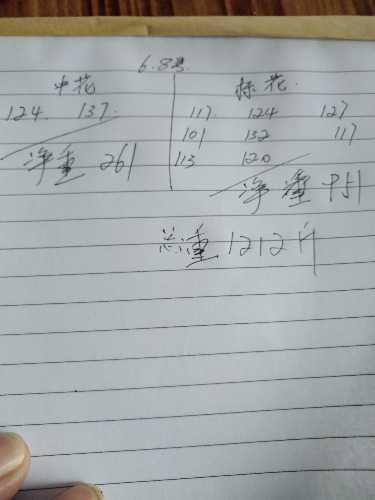 6.8号
中花
124. 137.
净重 261
标花.
117. 124 127
101 132 117
113 120
净重 951
总重1212斤